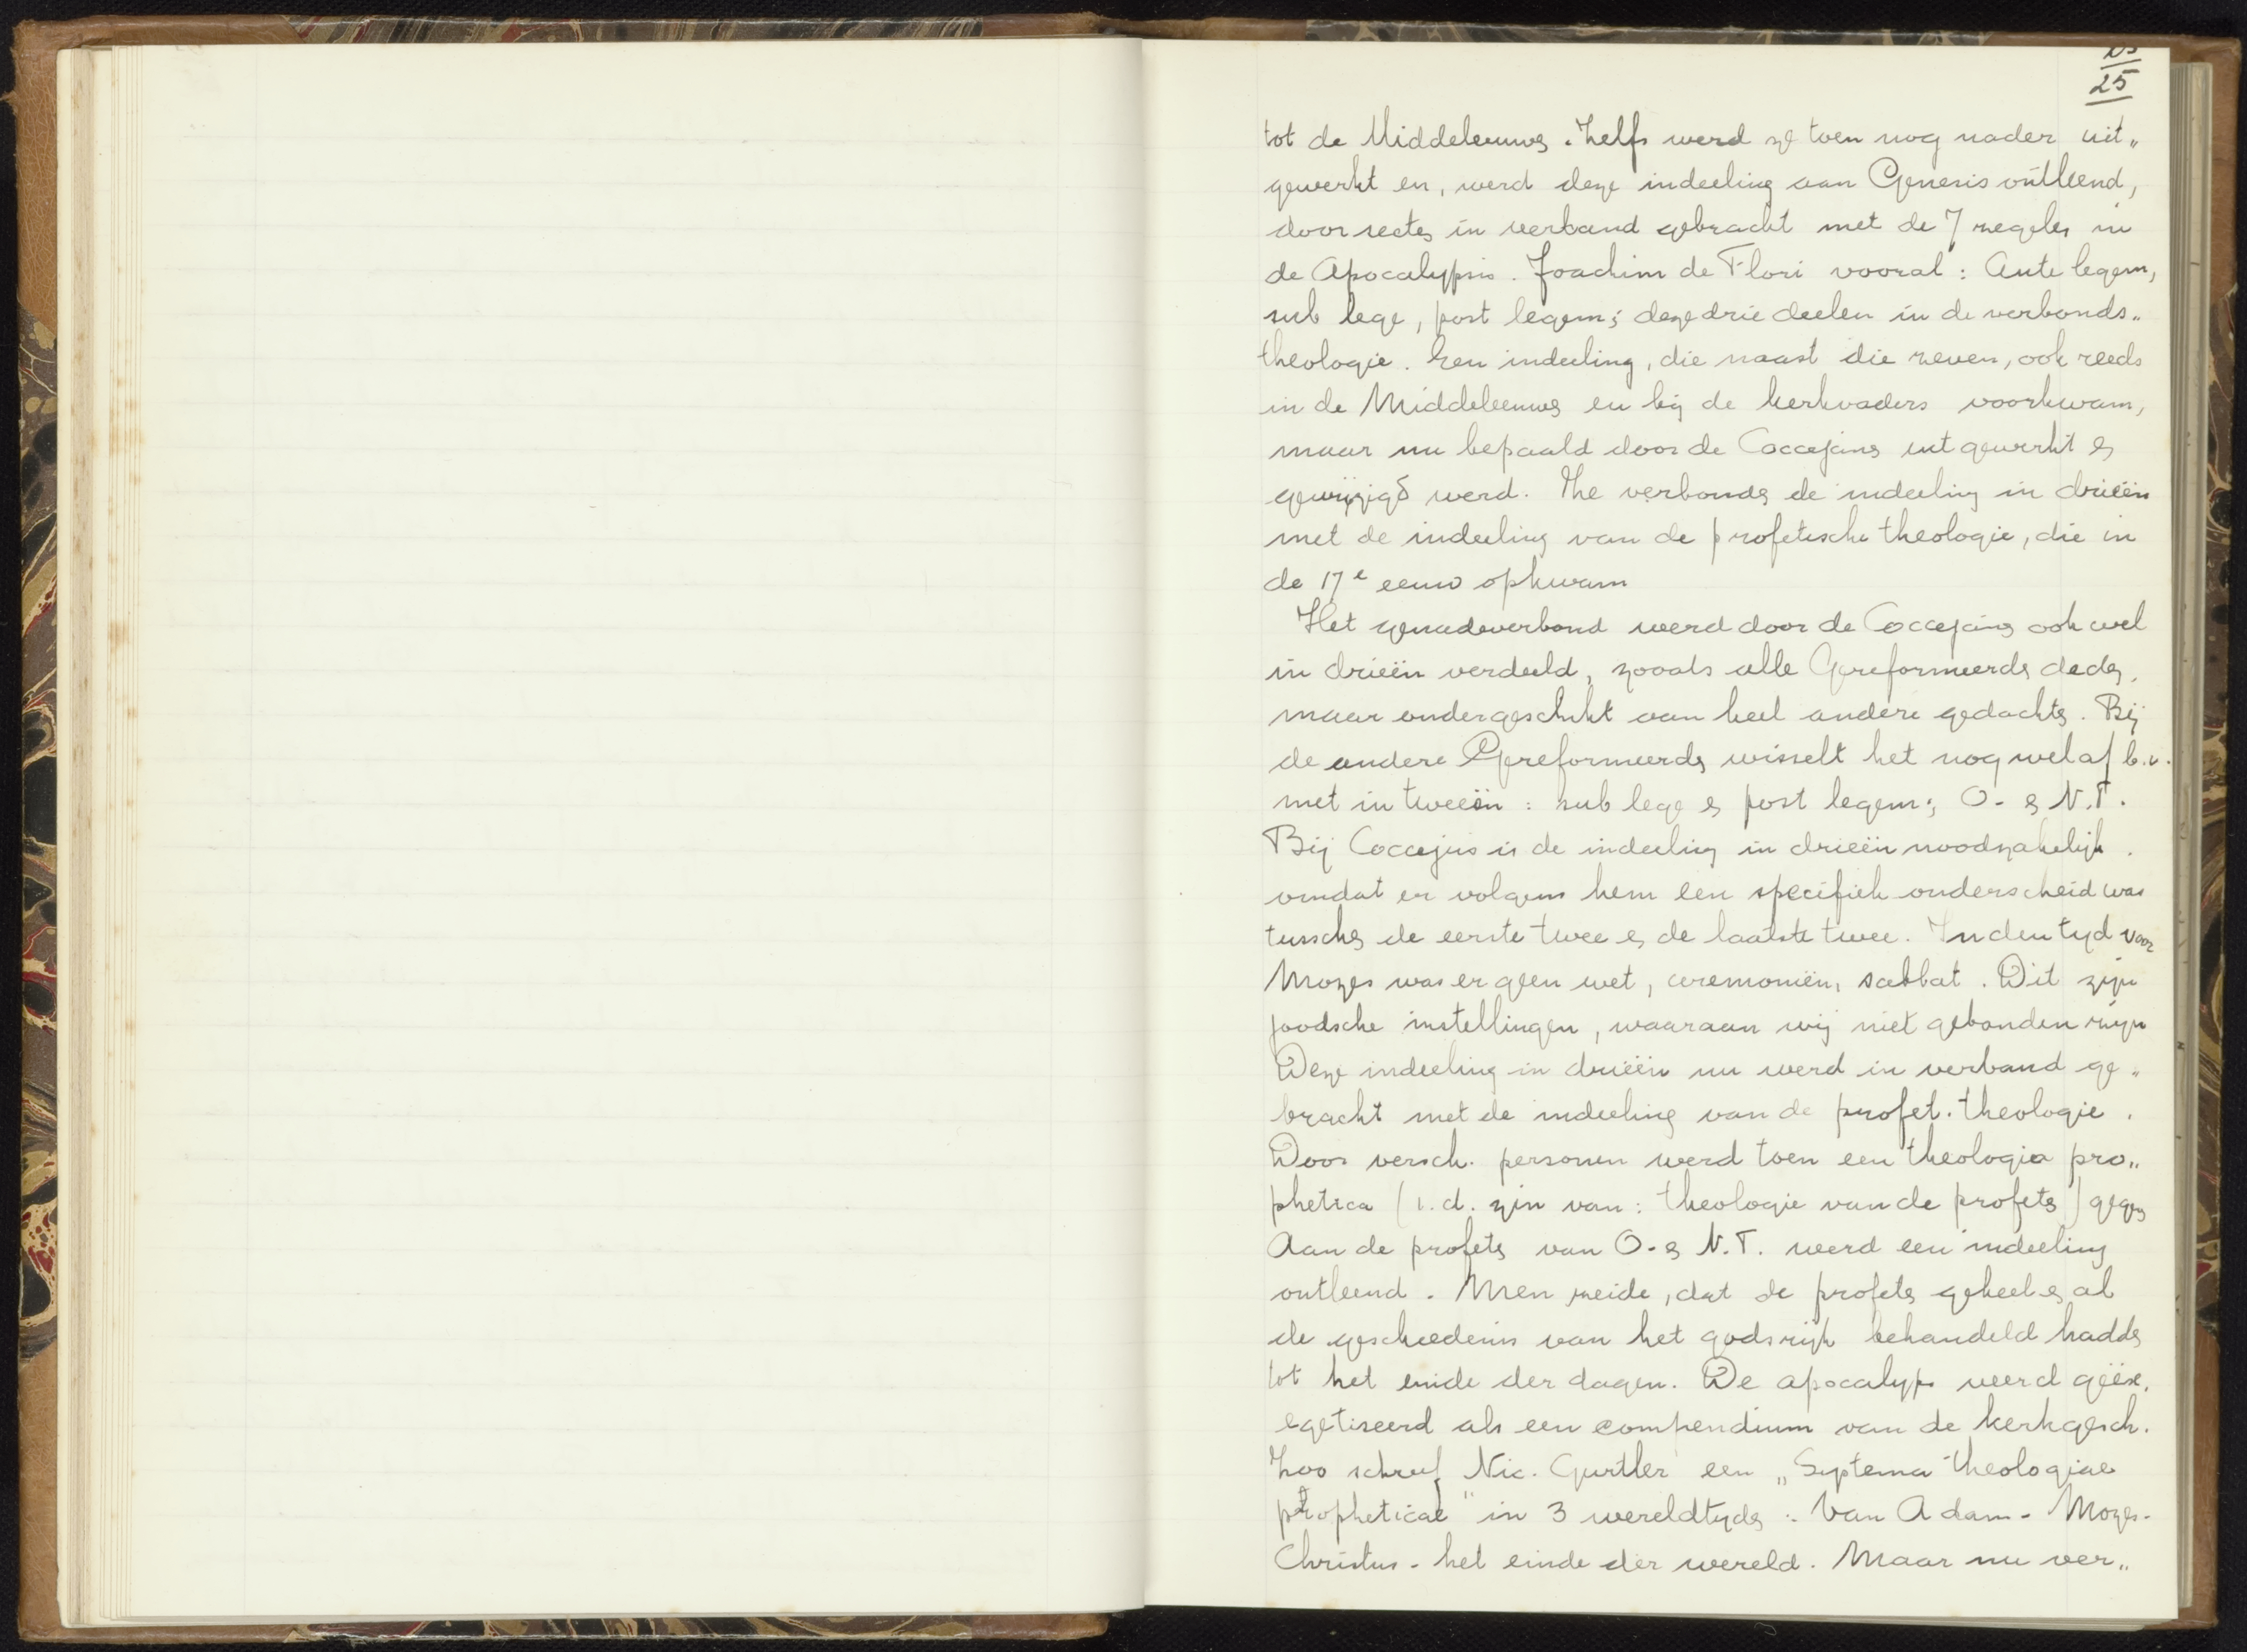 25
tot de Middeleeuwen. Zelfs werd ze toen nog nader uit„
gewerkt en, werd deze indeeling aan Genesis ontleend,
door secten in verband gebracht met de 7 zegelen in
de Apocalypsis. Joachim de Flori vooral: Ante legem,
sub lege, post legem; deze drie deelen in de verbonds„
theologie. Een indeeling, die naast die zeven, ook reeds
in de Middeleeuwen en bij de kerkvaders voorkwam,
maar nu bepaald door de Coccejanen uitgewerkt en
gewijzigd werd. Me verbonden de indeeling in drieën
met de indeeling van de profetische theologie, die in
de 17e eeuw opkwam
Het genadeverbond werd door de Coccejanen ook wel
in drieën verdeeld, zooals alle Gereformeerden deden,
maar ondergeschikt aan heel andere gedachten. Bij
de andere Gereformeerden wisselt het nog wel af b.v.
met in tweeën: sub lege en post legem; O- en N.T.
Bij Coccejus is de indeeling in drieën noodzakelijk.
omdat er volgens hem een specifiek onderscheid was
tusschen de eerste twee en de laatste twee. In den tijd voor
Mozes was er geen wet, ceremoniën, sabbat. Dit zijn
joodsche instellingen, waaraan wij niet gebonden zijn
Deze indeeling in drieën nu werd in verband ge„
bracht met de indeeling van de profet. theologie.
Door versch. personen werd toen een theologia pro„
phetica (i.d. zin van: theologie van de profeten) gegeven
Aan de profeten van O- en N.T. werd een indeeling
ontleend. Men zeide, dat de profeten geheel en al
de geschiedenis van het godsrijk behandeld hadden
tot het einde der dagen. De apocalyps werd geëx„
egetiseerd als een compendium van de kerkgesch.
Zoo schreef Nic. Gurtler een „Systema theologiae
propheticae" in 3 wereldtijden: Van Adam - Mozes -
Christus - het einde der wereld. Maar nu ver„